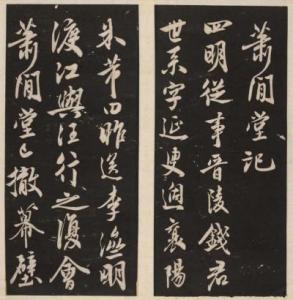 蕭閒堂記
四明從事晉陵錢君
世京字延叟襄陽
米芾曰昨送李明
渡江與汪行之復會
蕭閒堂已撤幕壁